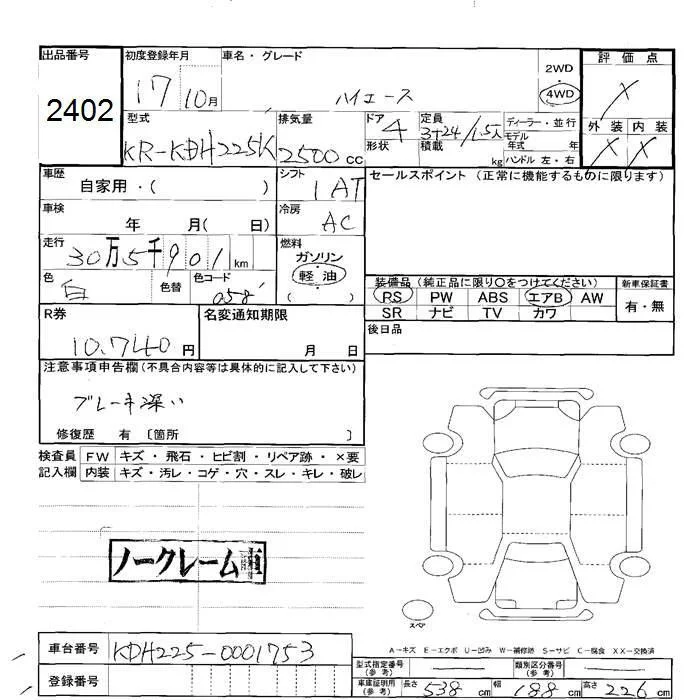 出品番号
2402
初度登録年月
17 10月
車名・グレード
ハイエース
2WD
4WD
評価点
X
型式
KR-KDH225K
排気量
2500cc
ドア 4
形状
定員
積載 kg
3+24/1.5人
ディーラー・並行
モデル年式 年
ハンドル 左・右
外装 内装
X X
車歴
自家用・( )
シフト
1AT
セールスポイント (正常に機能するものに限ります)
車検
年 月( 日)
冷房
AC
走行
30万5千901km
燃料
ガソリン
・
軽油
( )
色
白
色替
色コード
058
装備品 (純正品に限り○をつけてください)
PS PW ABS エアB AW
SR ナビ TV カワ
新車保証書
有・無
R券
10.740円
名変通知期限
月 日
後日品
注意事項申告欄 (不具合内容等は具体的に記入して下さい)
ブレーキ深い
修復歴 有 〔箇所 〕
検査員 FW キズ・飛石・ヒビ割・リペア跡・×要
記入欄 内装 キズ・汚レ・コゲ・穴・スレ・キレ・破レ
ノークレーム
スペア
A−キズ E−エクボ U−凹み W−補修跡 S−サビ C−腐食 XX−交換済
車台番号
KDH225-0001753
登録番号
型式指定番号
(参考)
類別区分番号
(参考)
車庫証明用
(参考)
長さ 538cm 幅 188cm 高さ 226cm